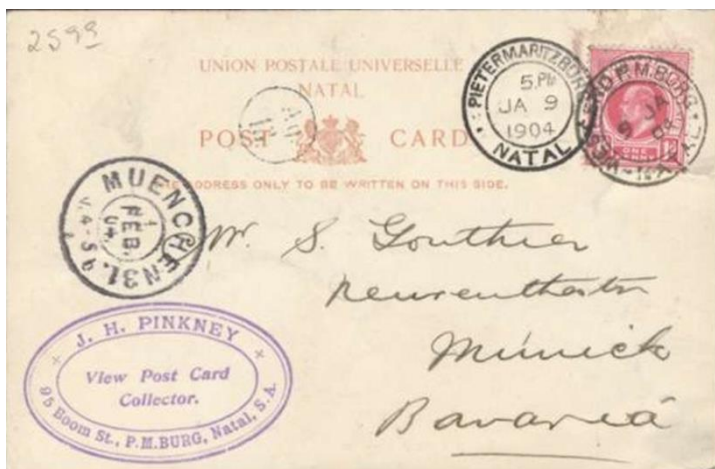 2599
UNION POSTALE UNIVERSELLE
NATAL
POST CARD
THE ADDRESS ONLY TO BE WRITTEN ON THIS SIDE.
PIETERMARITZBURG
5.PM
JA 9
1904
NATAL
WEST END P.M.BURG
9 JA
04
NATAL
ONE PENNY
MUENCHEN 31.
1
FEB.
04
N.4-5
W. S. Gouthier
Munich
Bavaria
J. H. PINKNEY
View Post Card
Collector.
95 Boom St., P.M.BURG, Natal, S.A.